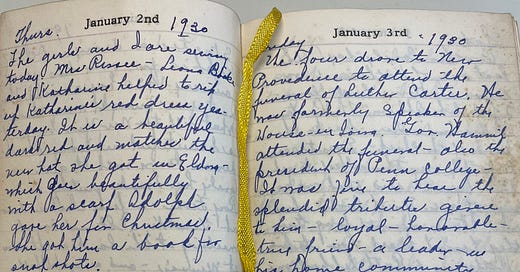 January 2nd 1930
Thurs.
The girls and I are sewing
today. Mrs - Leona
and Katharine helped to rip
up Katherine's red dress yes-
terday. It is a beautiful
dark red and matches the
new hat she got in Eldora -
which goes beautifully
with a scarf
gave her for Christmas.
She got him a book for
snapshots.
January 3rd 1930
Friday
We four drove to New
Providence to attend the
funeral of Luther Carter. He
was formerly Speaker of the
House in Iowa. Gov. Hammill
attended the funeral - also the
president of Penn College -
It was fine to hear the
splendid tributes given
to him - loyal - honorable -
true friend - a leader in
his home community